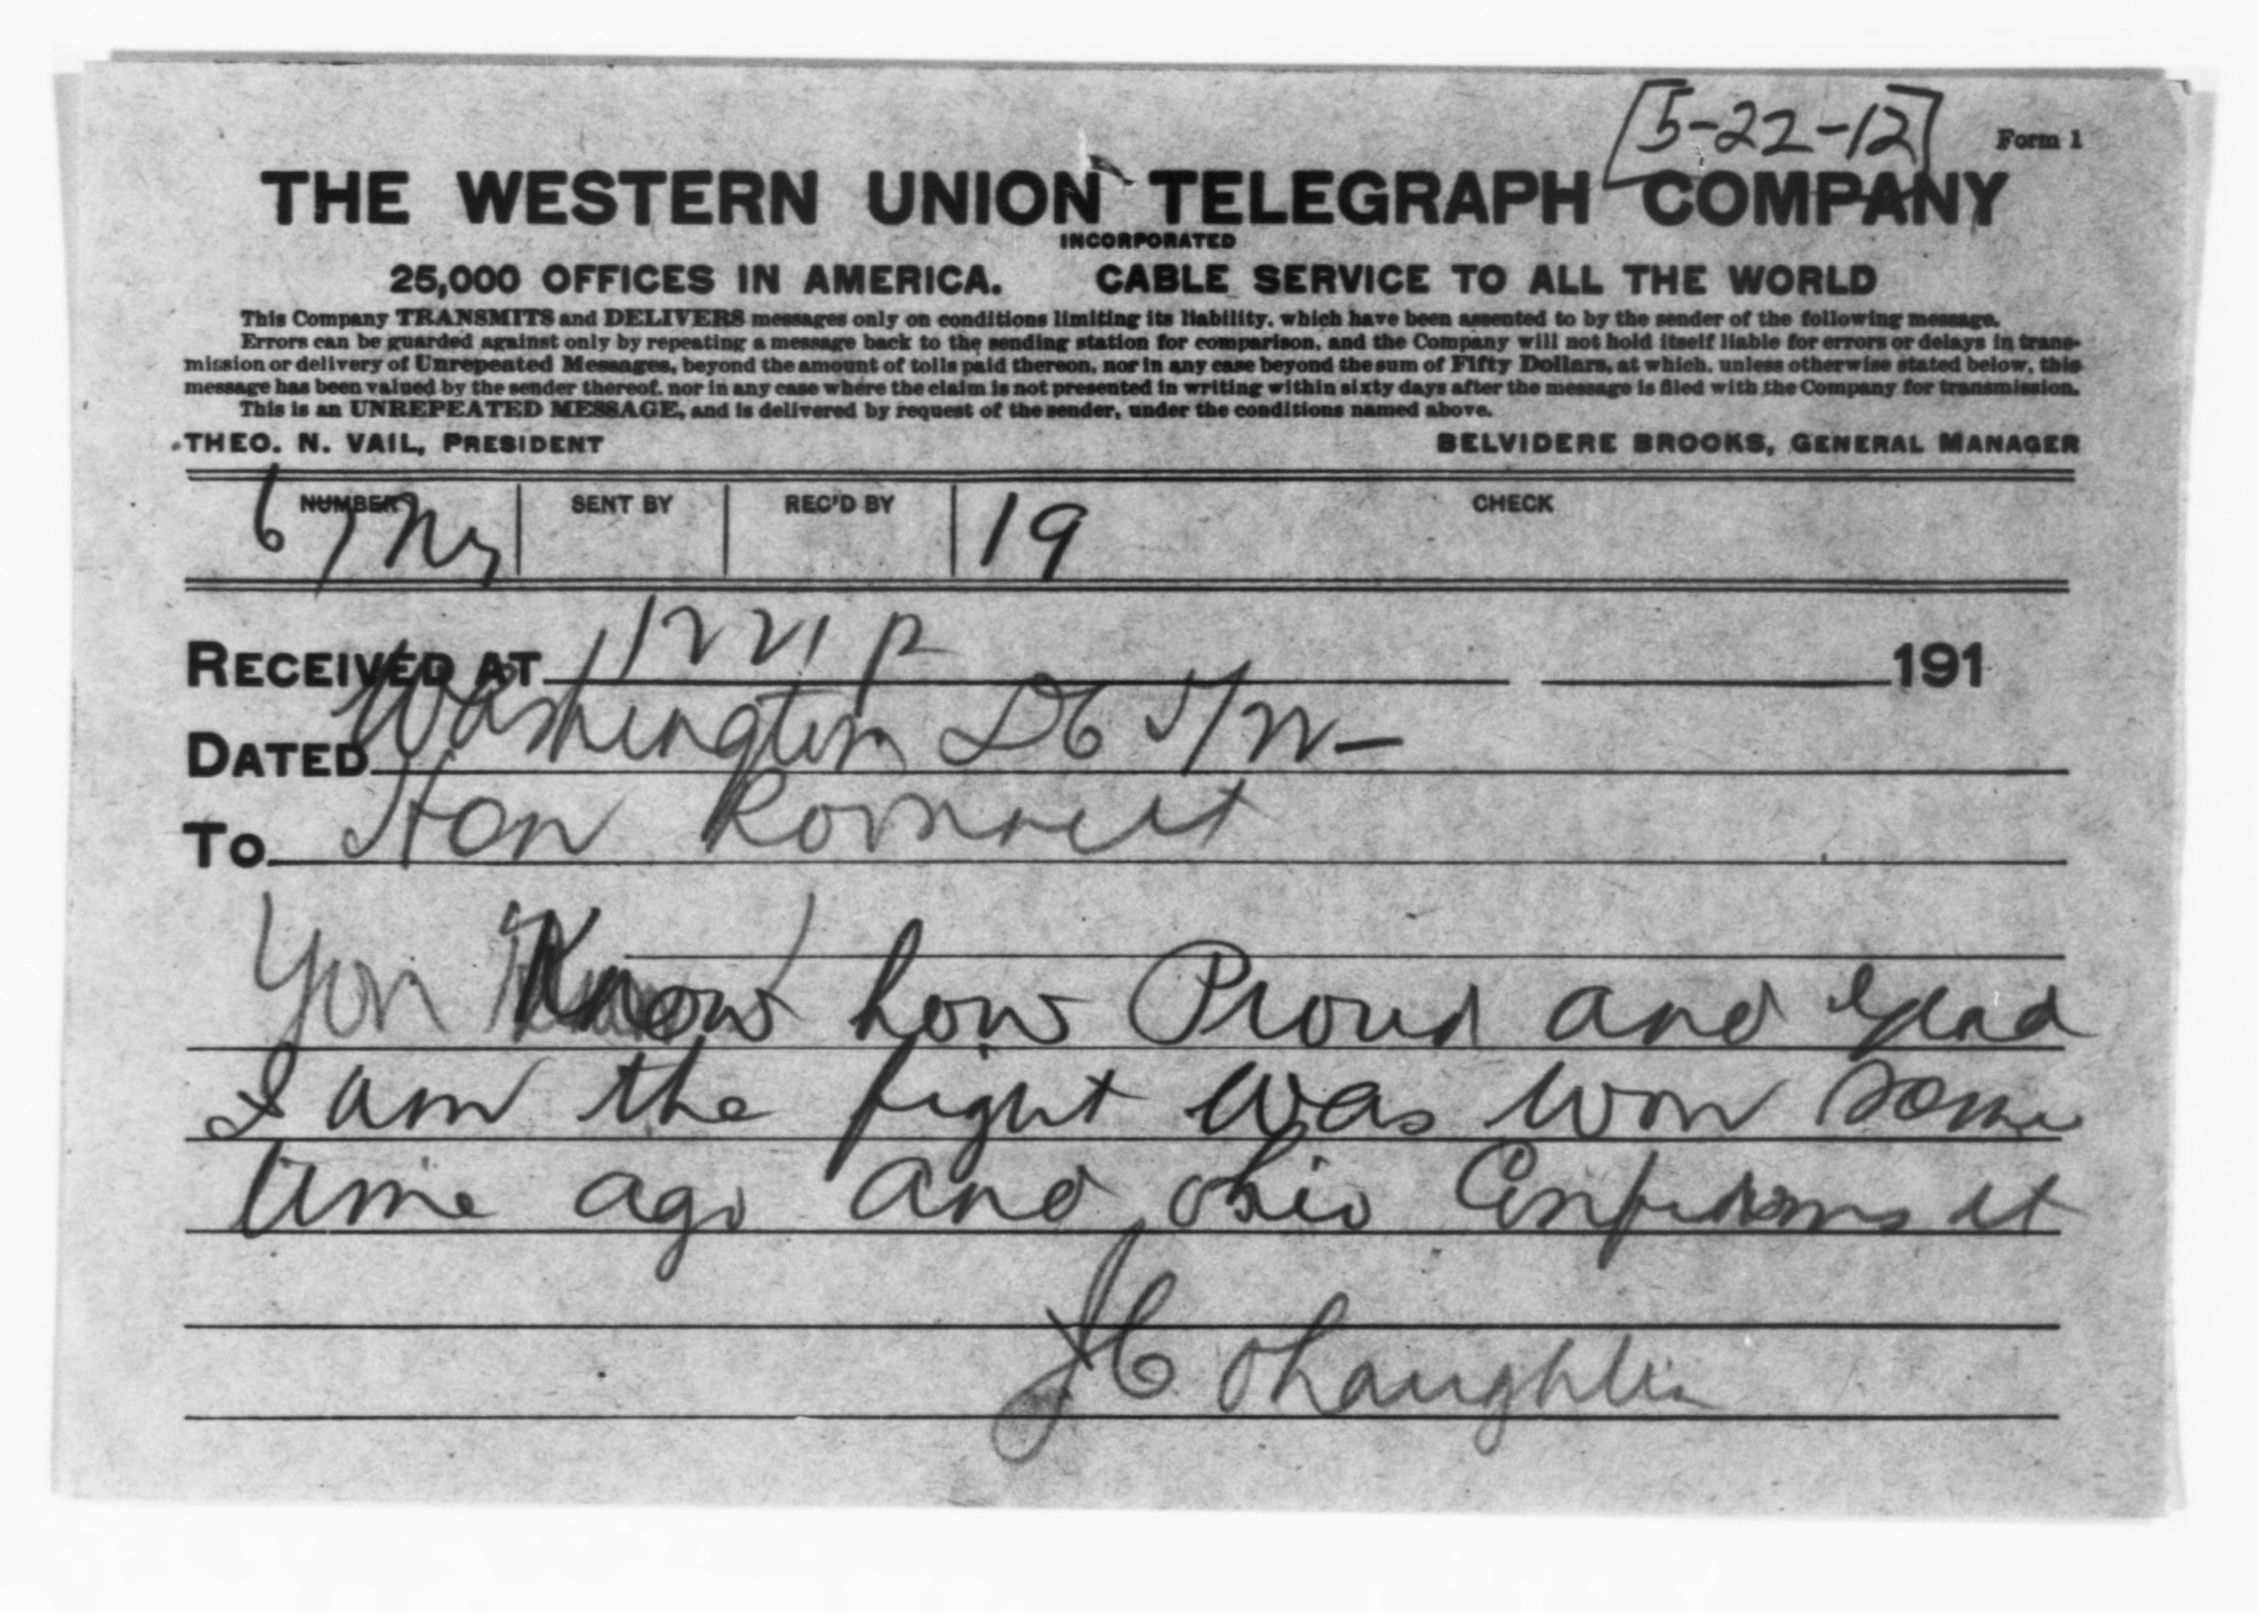 [5-22-12]
Form 1
THE WESTERN UNION TELEGRAPH COMPANY
INCORPORATED
25,000 OFFICES IN AMERICA. CABLE SERVICE TO ALL THE WORLD
This Company TRANSMITS and DELIVERS messages only on conditions limiting its liability, which have been assented to by the sender of the following message.
Errors can be guarded against only by repeating a message back to the sending station for comparison, and the Company will not hold itself liable for errors or delays in trans-
mission or delivery of Unrepeated Messages, beyond the amount of tolls paid thereon, nor in any case beyond the sum of Fifty Dollars, at which, unless otherwise stated below, this
message has been valued by the sender thereof, nor in any case where the claim is not presented in writing within sixty days after the message is filed with the Company for transmission.
This is an UNREPEATED MESSAGE, and is delivered by request of the sender, under the conditions named above.
THEO. N. VAIL, PRESIDENT BELVIDERE BROOKS, GENERAL MANAGER
NUMBER SENT BY REC'D BY CHECK
67 Ny 19
RECEIVED AT 1221 P 191
DATED Washington DC 5/22 —
To Hon Roosevelt
You Know how Proud and glad
I am the fight was won some
time ago and ohio Confirms it
J C oLaughlin